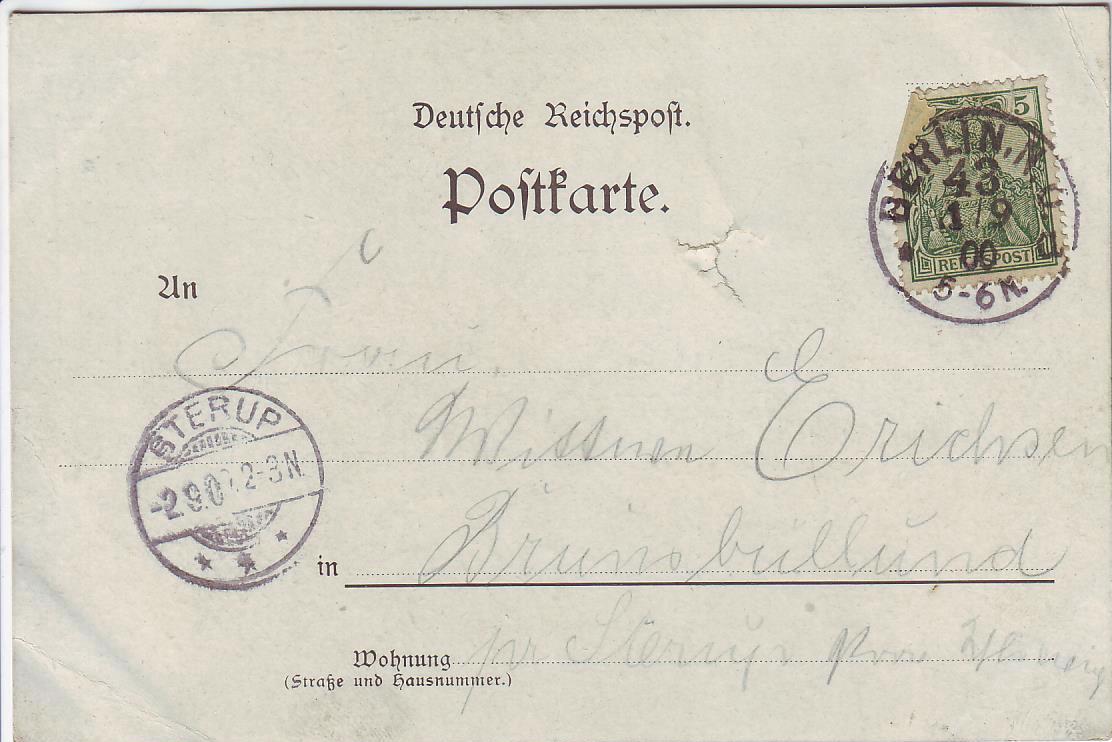 Deutsche Reichspost.
Postkarte.
5
REICHSPOST
BERLIN, N.
43
1/9
00
5-6 N.
An
Frau
Wittwe Erichsen
STERUP
2.9.0 2-3N
in Brunsbüllund
Wohnung pr Sterup Prov
(Straße und Hausnummer.)